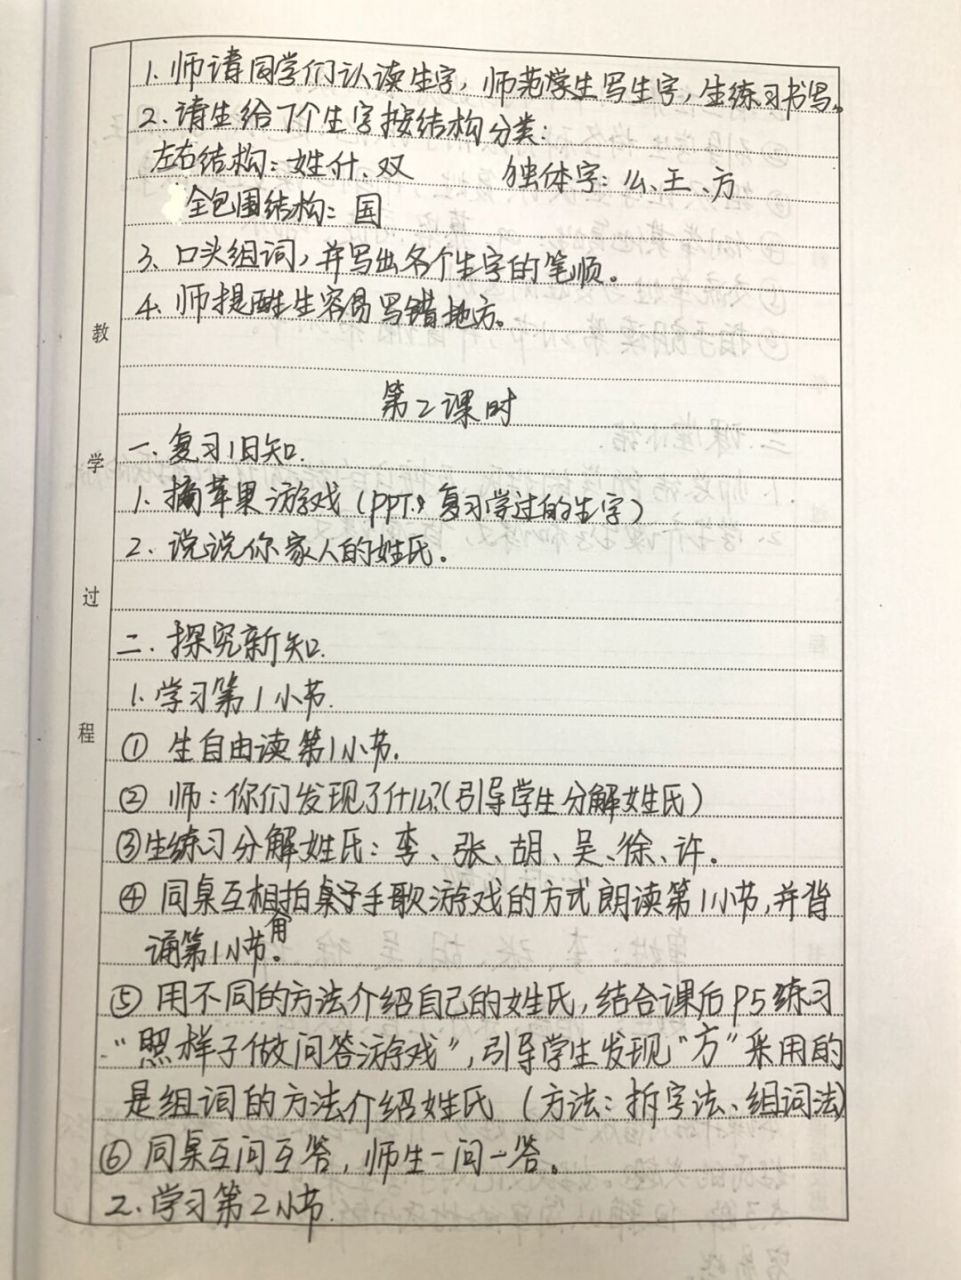 1. 师请同学们认读生字，师范学生写生字，生练习书写。
2. 请生给7个生字按结构分类：
左右结构：姓、什、双 独体字：么、王、方
全包围结构：国
3、口头组词，并写出各个生字的笔顺。
4. 师提醒生容易写错地方。
教
第2课时
学
一. 复习旧知.
1. 摘苹果游戏（PPT，复习学过的生字）
2. 说说你家人的姓氏。
过
二. 探究新知.
1. 学习第1小节.
程
① 生自由读第1小节.
② 师：你们发现了什么?(引导学生分解姓氏)
③生练习分解姓氏：李、张、胡、吴、徐、许.
④ 同桌互相拍桌子手歌游戏的方式朗读第1小节,并背
用
诵第1小节。
⑤ 用不同的方法介绍自己的姓氏,结合课后P5练习
“照样子做问答游戏”,引导学生发现“方”采用的
是组词的方法介绍姓氏（方法：拆字法、组词法）
⑥ 同桌互问互答，师生一问一答。
2. 学习第2小节.